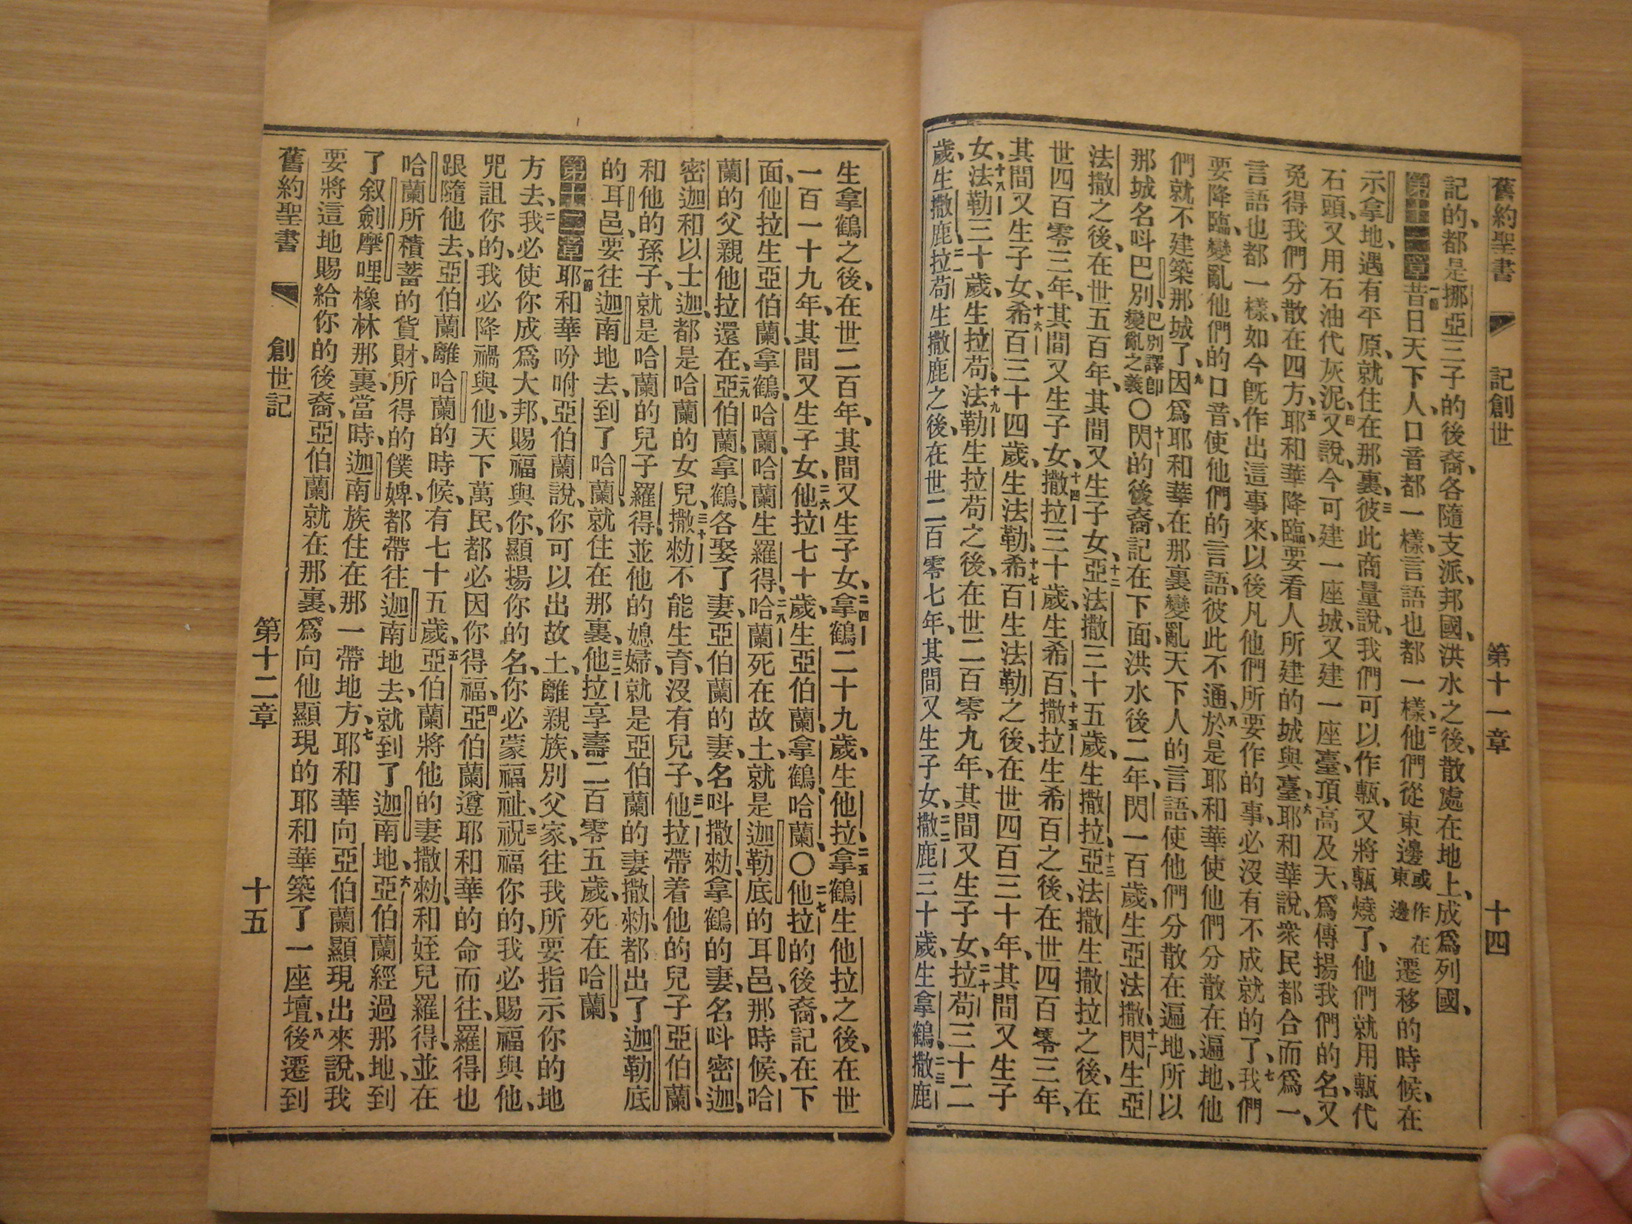 舊約聖書 記創世 第十一章 十四
記的、都是挪亞三子的後裔、各隨支派、邦國、洪水之後、散處在地上、成爲列國、
第十一章 一節昔日天下人、口音都一樣、言語也都一樣、二他們從東邊或作在東邊遷移的時候、在
示拿地、遇有平原、就住在那裏、三彼此商量說、我們可以作甎、又將甎燒了、他們就用甎代
石頭、又用石油代灰泥、四又說、今可建一座城、又建一座臺、頂高及天、爲傳揚我們的名、又
免得我們分散在四方、五耶和華降臨、要看人所建的城與臺、六耶和華說、衆民都合而爲一、
言語也都一樣、如今旣作出這事來、以後凡他們所要作的事、必沒有不成就的了、七我們
要降臨、變亂他們的口音、使他們的言語、彼此不通、八於是耶和華使他們分散在遍地、他
們就不建築那城了、九因爲耶和華在那裏變亂天下人的言語、使他們分散在遍地、所以
那城名呌巴別、巴別譯卽變亂之義〇十閃的後裔、記在下面、洪水後二年、閃一百歲、生亞法撒、十一閃生亞
法撒之後、在世五百年、其間又生子女、十二亞法撒三十五歲、生撒拉、十三亞法撒生撒拉之後、在
世四百零三年、其間又生子女、十四撒拉三十歲、生希百、十五撒拉生希百之後、在世四百零三年、
其間又生子女、十六希百三十四歲、生法勒、十七希百生法勒之後、在世四百三十年、其間又生子
女、十八法勒三十歲、生拉苟、十九法勒生拉苟之後、在世二百零九年、其間又生子女、二十拉苟三十二
歲、生撒鹿、二一拉苟生撒鹿之後、在世二百零七年、其間又生子女、二二撒鹿三十歲、生拿鶴、二三撒鹿
生拿鶴之後、在世二百年、其間又生子女、二四拿鶴二十九歲、生他拉、二五拿鶴生他拉之後、在世
一百一十九年、其間又生子女、二六他拉七十歲、生亞伯蘭、拿鶴、哈蘭、〇二七他拉的後裔、記在下
面、他拉生亞伯蘭、拿鶴、哈蘭、哈蘭生羅得、二八哈蘭死在故土、就是迦勒底的耳邑、那時候、哈
蘭的父親他拉還在、二九亞伯蘭、拿鶴、各娶了妻、亞伯蘭的妻、名呌撒勑、拿鶴的妻、名呌密迦、
密迦和以士迦、都是哈蘭的女兒、三十撒勑不能生育、沒有兒子、三一他拉帶着他的兒子亞伯蘭、
和他的孫子、就是哈蘭的兒子羅得、並他的媳婦、就是亞伯蘭的妻撒勑、都出了迦勒底
的耳邑、要往迦南地去、到了哈蘭、就住在那裏、三二他拉享壽二百零五歲、死在哈蘭、
第十二章 一節耶和華吩咐亞伯蘭說、你可以出故土、離親族、別父家、往我所要指示你的地
方去、二我必使你成爲大邦、賜福與你、顯揚你的名、你必蒙福祉、三祝福你的、我必賜福與他、
咒詛你的、我必降禍與他、天下萬民、都必因你得福、四亞伯蘭遵耶和華的命而往、羅得也
跟隨他去、亞伯蘭離哈蘭的時候、有七十五歲、五亞伯蘭將他的妻撒勑、和姪兒羅得、並在
哈蘭所積蓄的貨財、所得的僕婢、都帶往迦南地去、就到了迦南地、六亞伯蘭經過那地、到
了叙劍摩哩橡林那裏、當時、迦南族住在那一帶地方、七耶和華向亞伯蘭顯現出來說、我
要將這地賜給你的後裔、亞伯蘭就在那裏、爲向他顯現的耶和華築了一座壇、八後遷到
舊約聖書 創世記 第十二章 十五